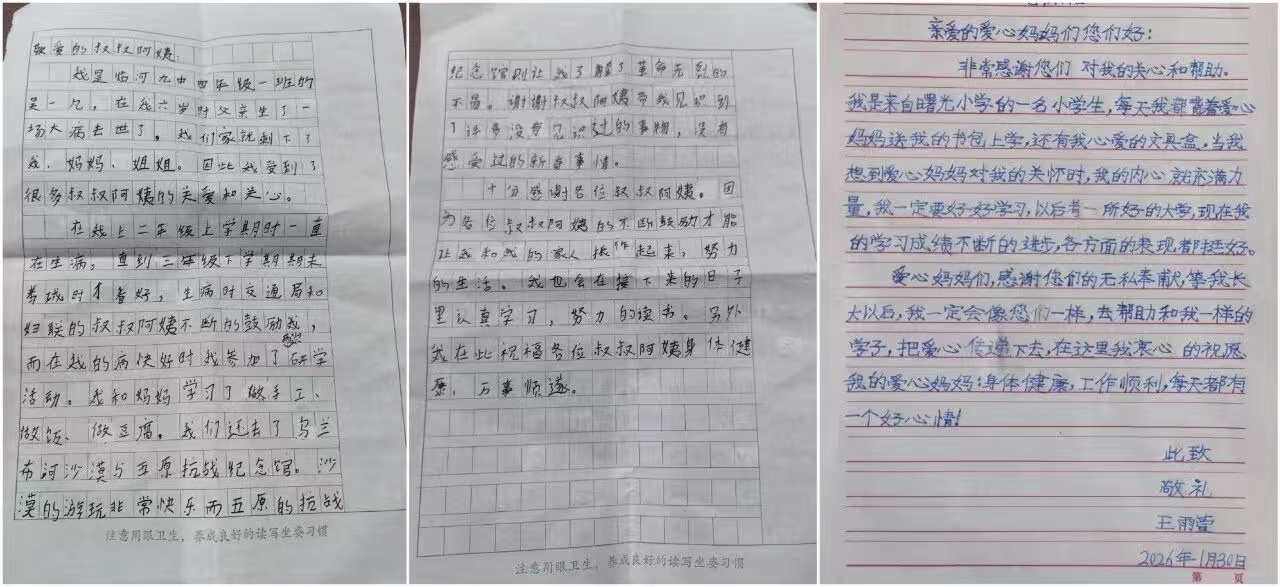 敬爱的叔叔阿姨:
我是临河九中四年级一班的
吴一凡,在我六岁时父亲生了一
场大病去世了,我们家就剩下了
我、妈妈、姐姐。因此我受到了
很多叔叔阿姨的关爱和关心。
在我上二年级上学期时一直
在生病,直到三年级下学期期末
考试时才看好,生病时交通局和
妇联的叔叔阿姨不断的鼓励我,
而在我的病快好时我参加了研学
活动。我和妈妈学习了做手工、
做饭、做豆腐。我们还去了乌兰
布河沙漠与五原抗战纪念馆。沙
漠的游玩非常快乐而五原的抗战
注意用眼卫生,养成良好的读写坐姿习惯
纪念馆则让我了解了革命先烈的
不易。谢谢叔叔阿姨带我见识到
了许多没有见识过的事物,没有
感受过的新奇事情。
十分感谢各位叔叔阿姨。因
为各位叔叔阿姨的不断鼓励才能
让我和我的家人振作起来,努力
的生活。我也会在接下来的日子
里认真学习,努力的读书。另外
我在此祝福各位叔叔阿姨身体健
康,万事顺遂。
注意用眼卫生,养成良好的读写坐姿习惯
亲爱的爱心妈妈们您们好:
非常感谢您们对我的关心和帮助。
我是来自曙光小学的一名小学生,每天我都背着爱心
妈妈送我的书包上学,还有我心爱的文具盒。当我
想到爱心妈妈对我的关怀时,我的内心就充满力
量,我一定要好好学习,以后考一所好的大学,现在我
的学习成绩不断的进步,各方面的表现都挺好。
爱心妈妈们,感谢您们的无私奉献,等我长
大以后,我一定会像您们一样,去帮助和我一样的
学子,把爱心传递下去,在这里我衷心的祝愿
我的爱心妈妈:身体健康,工作顺利,每天都有
一个好心情!
此致
敬礼
王雨萱
2026年1月30日
第 页